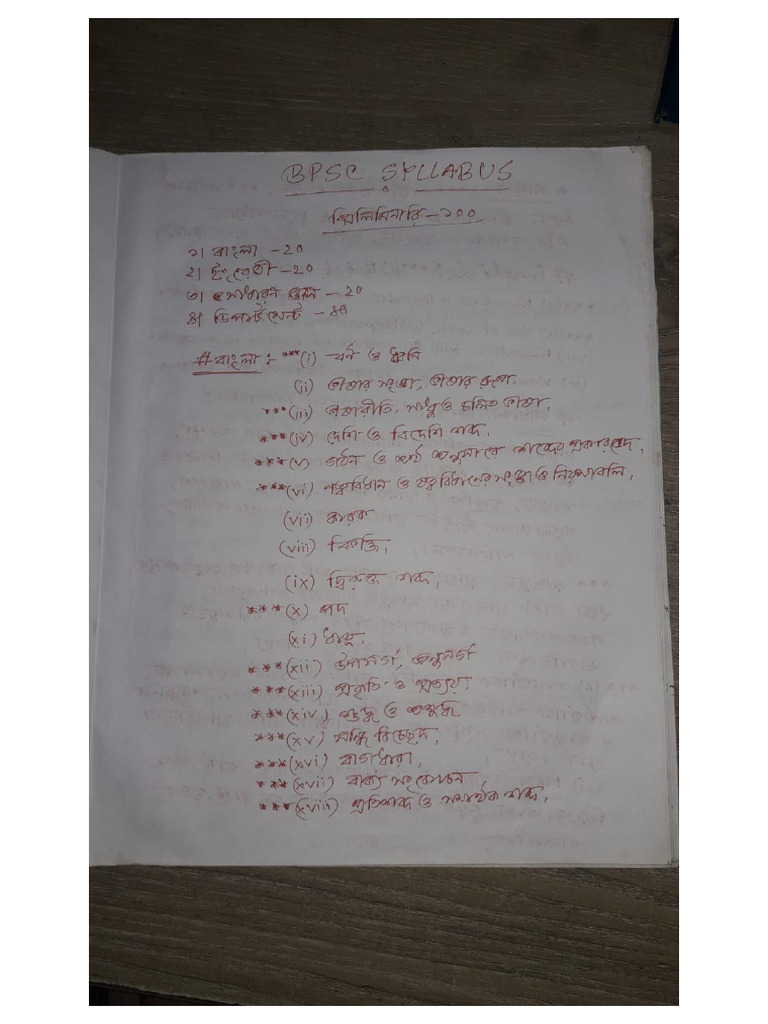 BPSC SYLLABUS
প্রিলিমিনারি - ১০০
১। বাংলা - ২০
২। ইংরেজী - ২০
৩। সাধারন জ্ঞান - ২০
৪। ডিপার্টমেন্ট - ৪০
# বাংলা : ***(i) বর্ণ ও ধ্বনি
(ii) ভাষার সংজ্ঞা, ভাষার রূপ,
***(iii) ভাষারীতি, সাধু ও চলিত ভাষা,
***(iv) দেশি ও বিদেশি শব্দ,
***(v) গঠন ও অর্থ অনুসারে শব্দের প্রকারভেদ,
***(vi) ণত্ববিধান ও ষত্ববিধানের সংজ্ঞা ও নিয়মাবলি,
(vii) কারক
(viii) বিভক্তি,
(ix) দ্বিরুক্ত শব্দ,
***(x) পদ
(xi) ধাতু,
***(xii) উপসর্গ, অনুসর্গ
***(xiii) প্রকৃতি ও প্রত্যয়,
***(xiv) শুদ্ধ ও অশুদ্ধি
***(xv) সন্ধি বিচ্ছেদ,
***(xvi) বাগধারা,
***(xvii) বাক্য সংকোচন,
***(xviii) প্রতিশব্দ ও সমার্থক শব্দ,